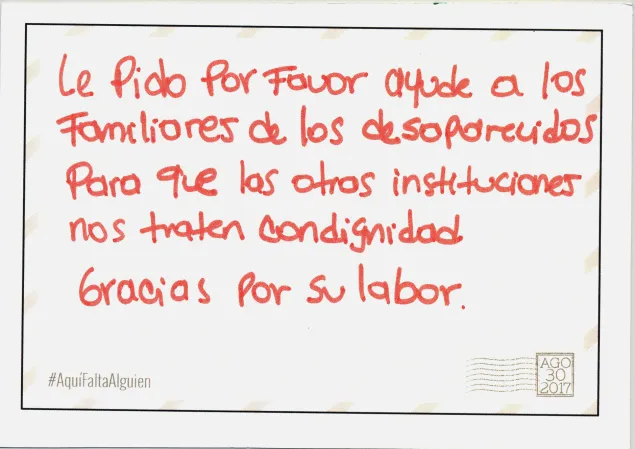 Le Pido Por Favor ayude a los
Familiares de los desaparecidos
Para que las otras instituciones
nos traten condignidad
Gracias por su labor.
#AquíFaltaAlguien
AGO
30
2017